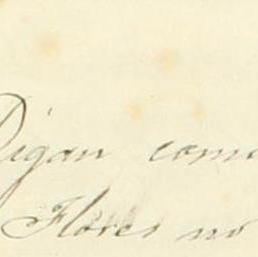 Digan como
Flores no